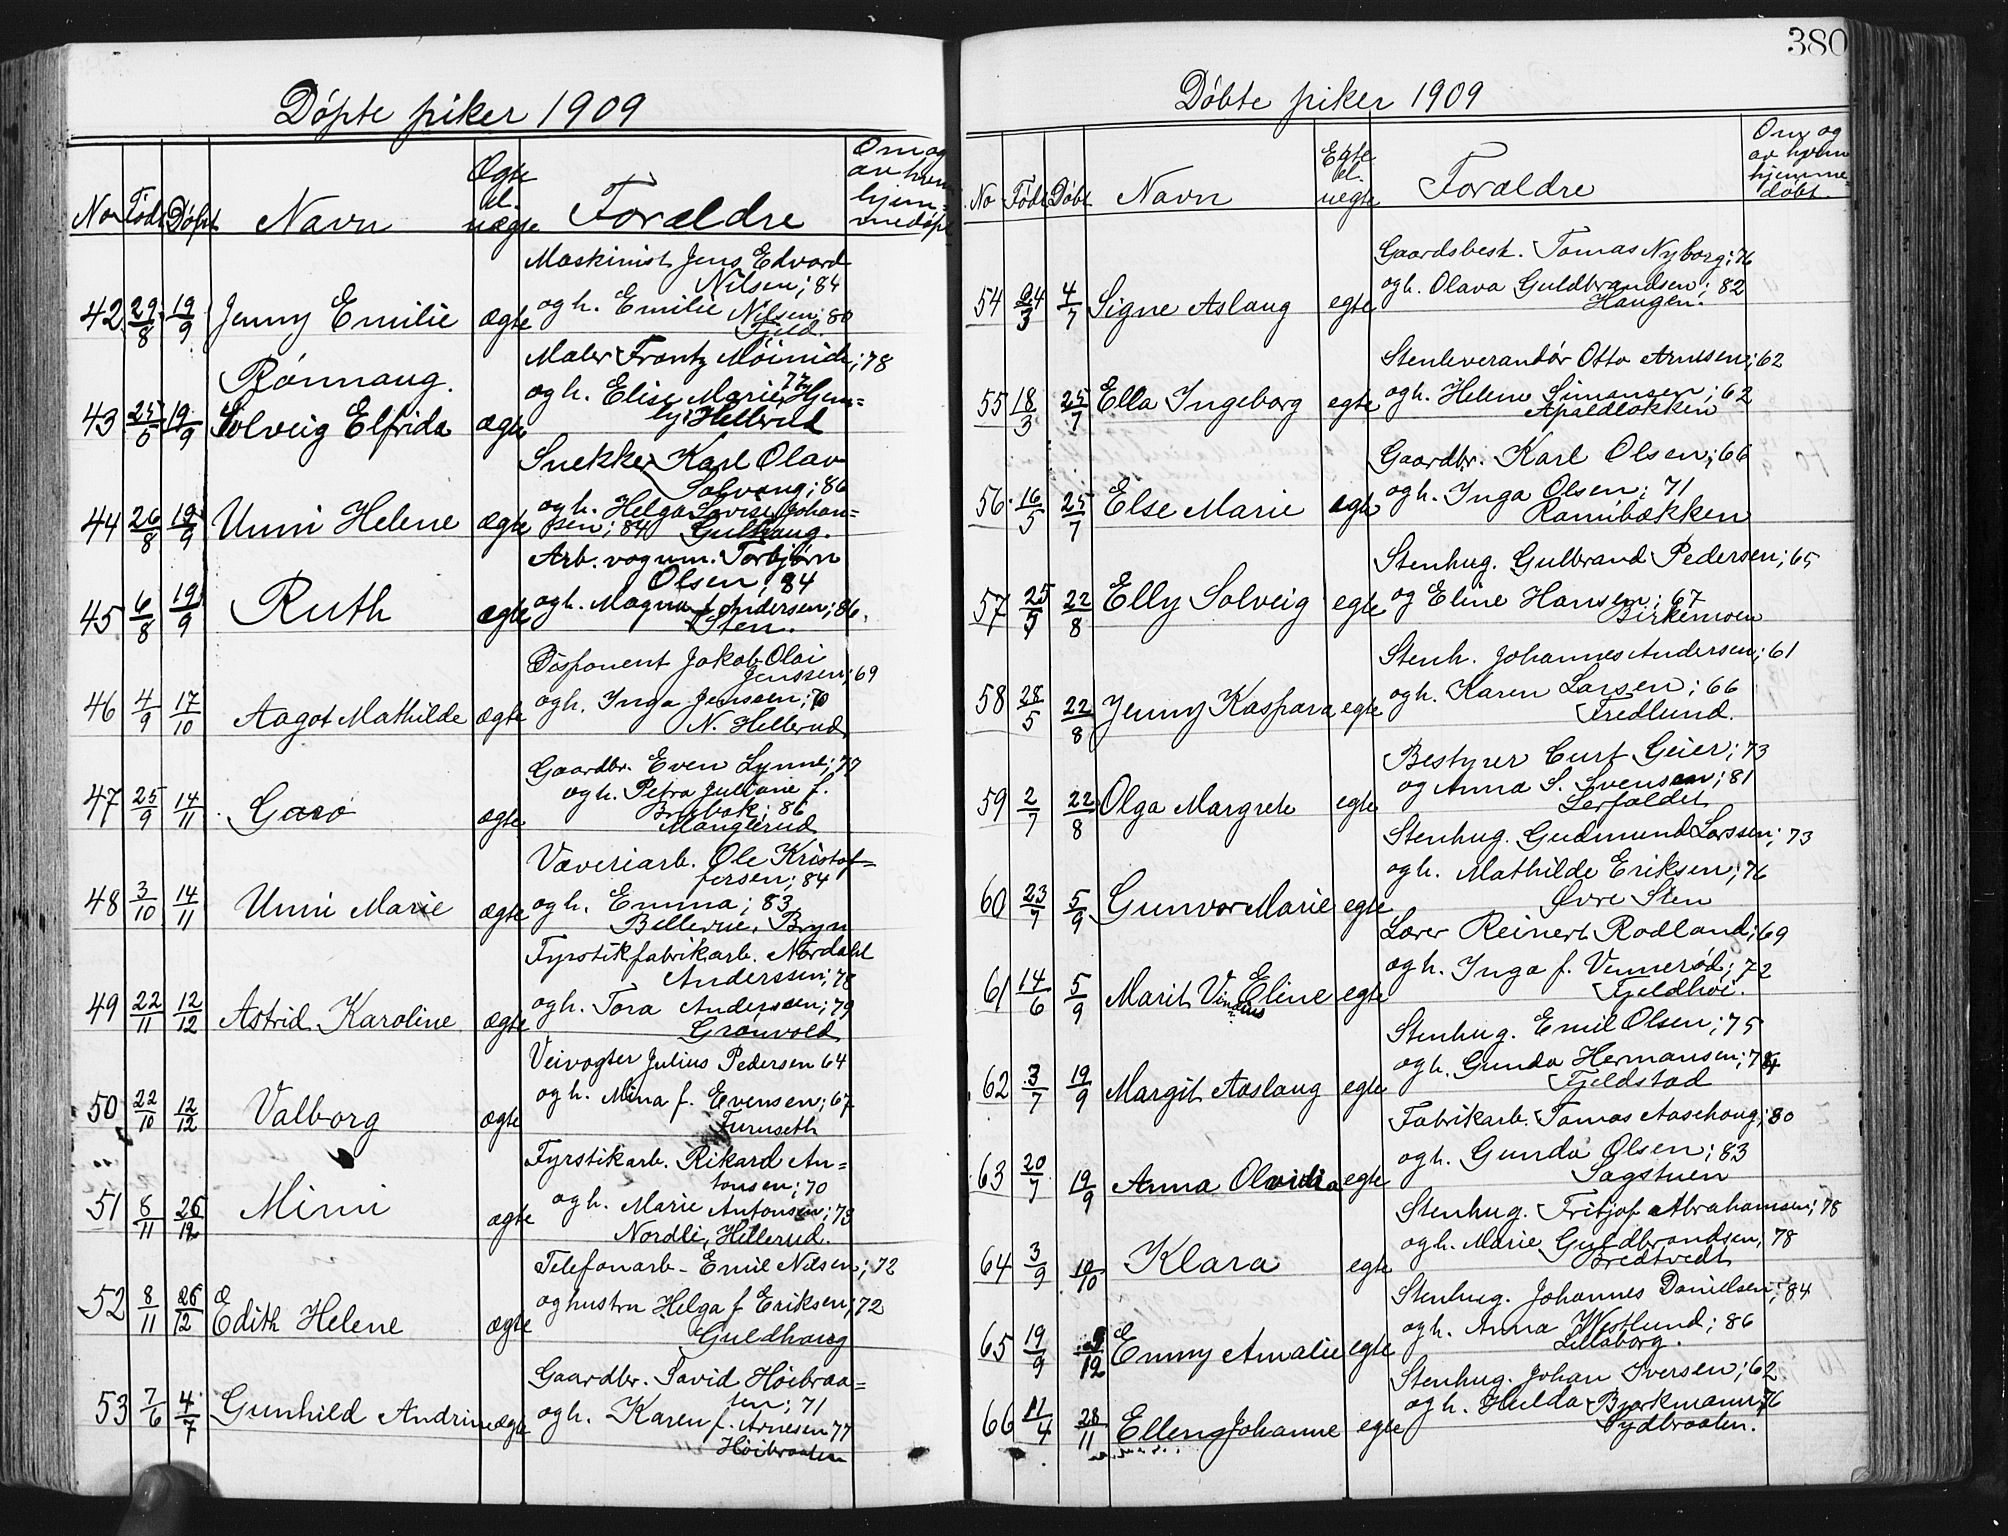 380
Døpte piker 1909
No Født Døpt Navn Ægte el. uægte Foræ​ldre Om og av hvem hjem-medøpt
Maskinist Jens Edvard
Nilsen; 84
og h. Emilie Nilsen; 80
42 29/8 19/9 Jenny Emilie ægte Fjeld.
Maler Frantz Møinich; 78
Rønnaug.
og h. Elise Marie, 77 Hem=
43 25/5 19/9 Solveig Elfrida ægte Hellerud
Snekker Karl Olav
Solvang; 86
og h. Helga Lovise Johan=
44 26/8 19/9 Unni Helene ægte sen; 84 Gulhaug.
Arb. vognm. Torbjørn
Olsen, 84
45 6/8 19/9 Ruth ægte og h. Magna f. Andersen; 86.
Sten.
Disponent Jakob Olai
Jenssen; 69
46 4/9 17/10 Aagot Mathilde ægte og h. Inga Jenssen; 70
N. Hellerud
Gaardbr. Even Lynne; 77
og h. Petra Juliane f.
47 25/9 14/11 Garo ægte Brubak; 86
Manglerud
Væveriarb. Ole Kristof=
fersen; 84
48 3/10 14/11 Unni Marie ægte og h. Emma; 83
Bellevue, Bryn
Fyrstikfabrikarb. Nordahl
Anderssen; 78
49 22/11 12/12 Astrid Karoline ægte og h. Tora Anderssen; 79
Grønvold
Veivogter Julius Pedersen 64
50 22/10 12/12 Valborg ægte og h. Mina f. Evensen; 67
Furuseth
Fyrstikarb. Rikard An=
tonsen; 70
51 8/11 26/12 Mimi ægte og h. Marie Antonsen; 73
Nordli, Hellerud.
Telefonarb. Emil Nilsen; 72
52 8/11 26/12 Edith Helene ægte og hustru Helga f Eriksen; 72
Guldhaug
Gaardbr. Tavid Høibraa=
ten; 71
53 7/6 4/7 Gunhild Andrine ægte og h. Karen f. Arnesen 77
Høibraaten
Døbte piker 1909
No Født Døbt Navn Egte el. uegte Forældre Om og av hvem hjemme=døbt.
Gaardsbest. Tomas Nyborg; 76
54 24/3 4/7 Signe Aslaug egte og h. Olava Guldbrandsen; 82
Haugen.
Stenleverandør Otto Arnesen; 62
55 18/3 25/7 Ella Ingeborg egte og h. Helene Simonsen; 62
Apaldløkken
Gaardbr. Karl Olsen; 66
56 16/5 25/7 Else Marie egte og h. Inga Olsen; 71
Rannbækken
Stenhug. Gulbrand Pedersen; 65
57 25/5 22/8 Elly Solveig egte og Eline Hansen; 67
Birkemoen
Stenh. Johannes Andersen; 61
58 28/5 22/8 Jenny Kaspara egte og h. Karen Larsen; 66
Fredlund.
Bestyrer Curt Geier; 73
59 2/7 22/8 Olga Margrete egte og Anna S. Svensen; 81
Lerfaldet
Stenhug. Gudmund Larssen; 73
60 23/7 5/9 Gunvor Marie egte og h. Mathilde Eriksen; 76
Øvre Sten
Lærer Reinert Rødland; 69
61 14/6 5/9 Marit Eline egte og h. Inga f. Vennerød; 72
Fjeldhøi.
Stenhug. Emil Olsen; 75
62 3/7 19/9 Margit Aaslaug egte og h. Gunda Hermansen; 74
Fjeldstad
Fabrikarb. Tomas Aasehaug; 80
63 20/7 19/9 Anna Olvidia egte og h. Gunda Olsen; 83
Sagstuen
Stenhug. Fritjof Abrahamsen; 78
64 3/9 10/10 Klara egte og h. Marie Guldbrandsen, 78
Bredtvedt
Stenhug. Johannes Danielsen; 84
65 19/9 12 Emmy Amalie egte og h. Anna Westlund; 86
Lillaborg.
Stenhug. Johan Iversen; 62
66 11/4 28/11 Ellen Johanne egte og h. Hulda Bjørkmann; 76
Sydbraaten.